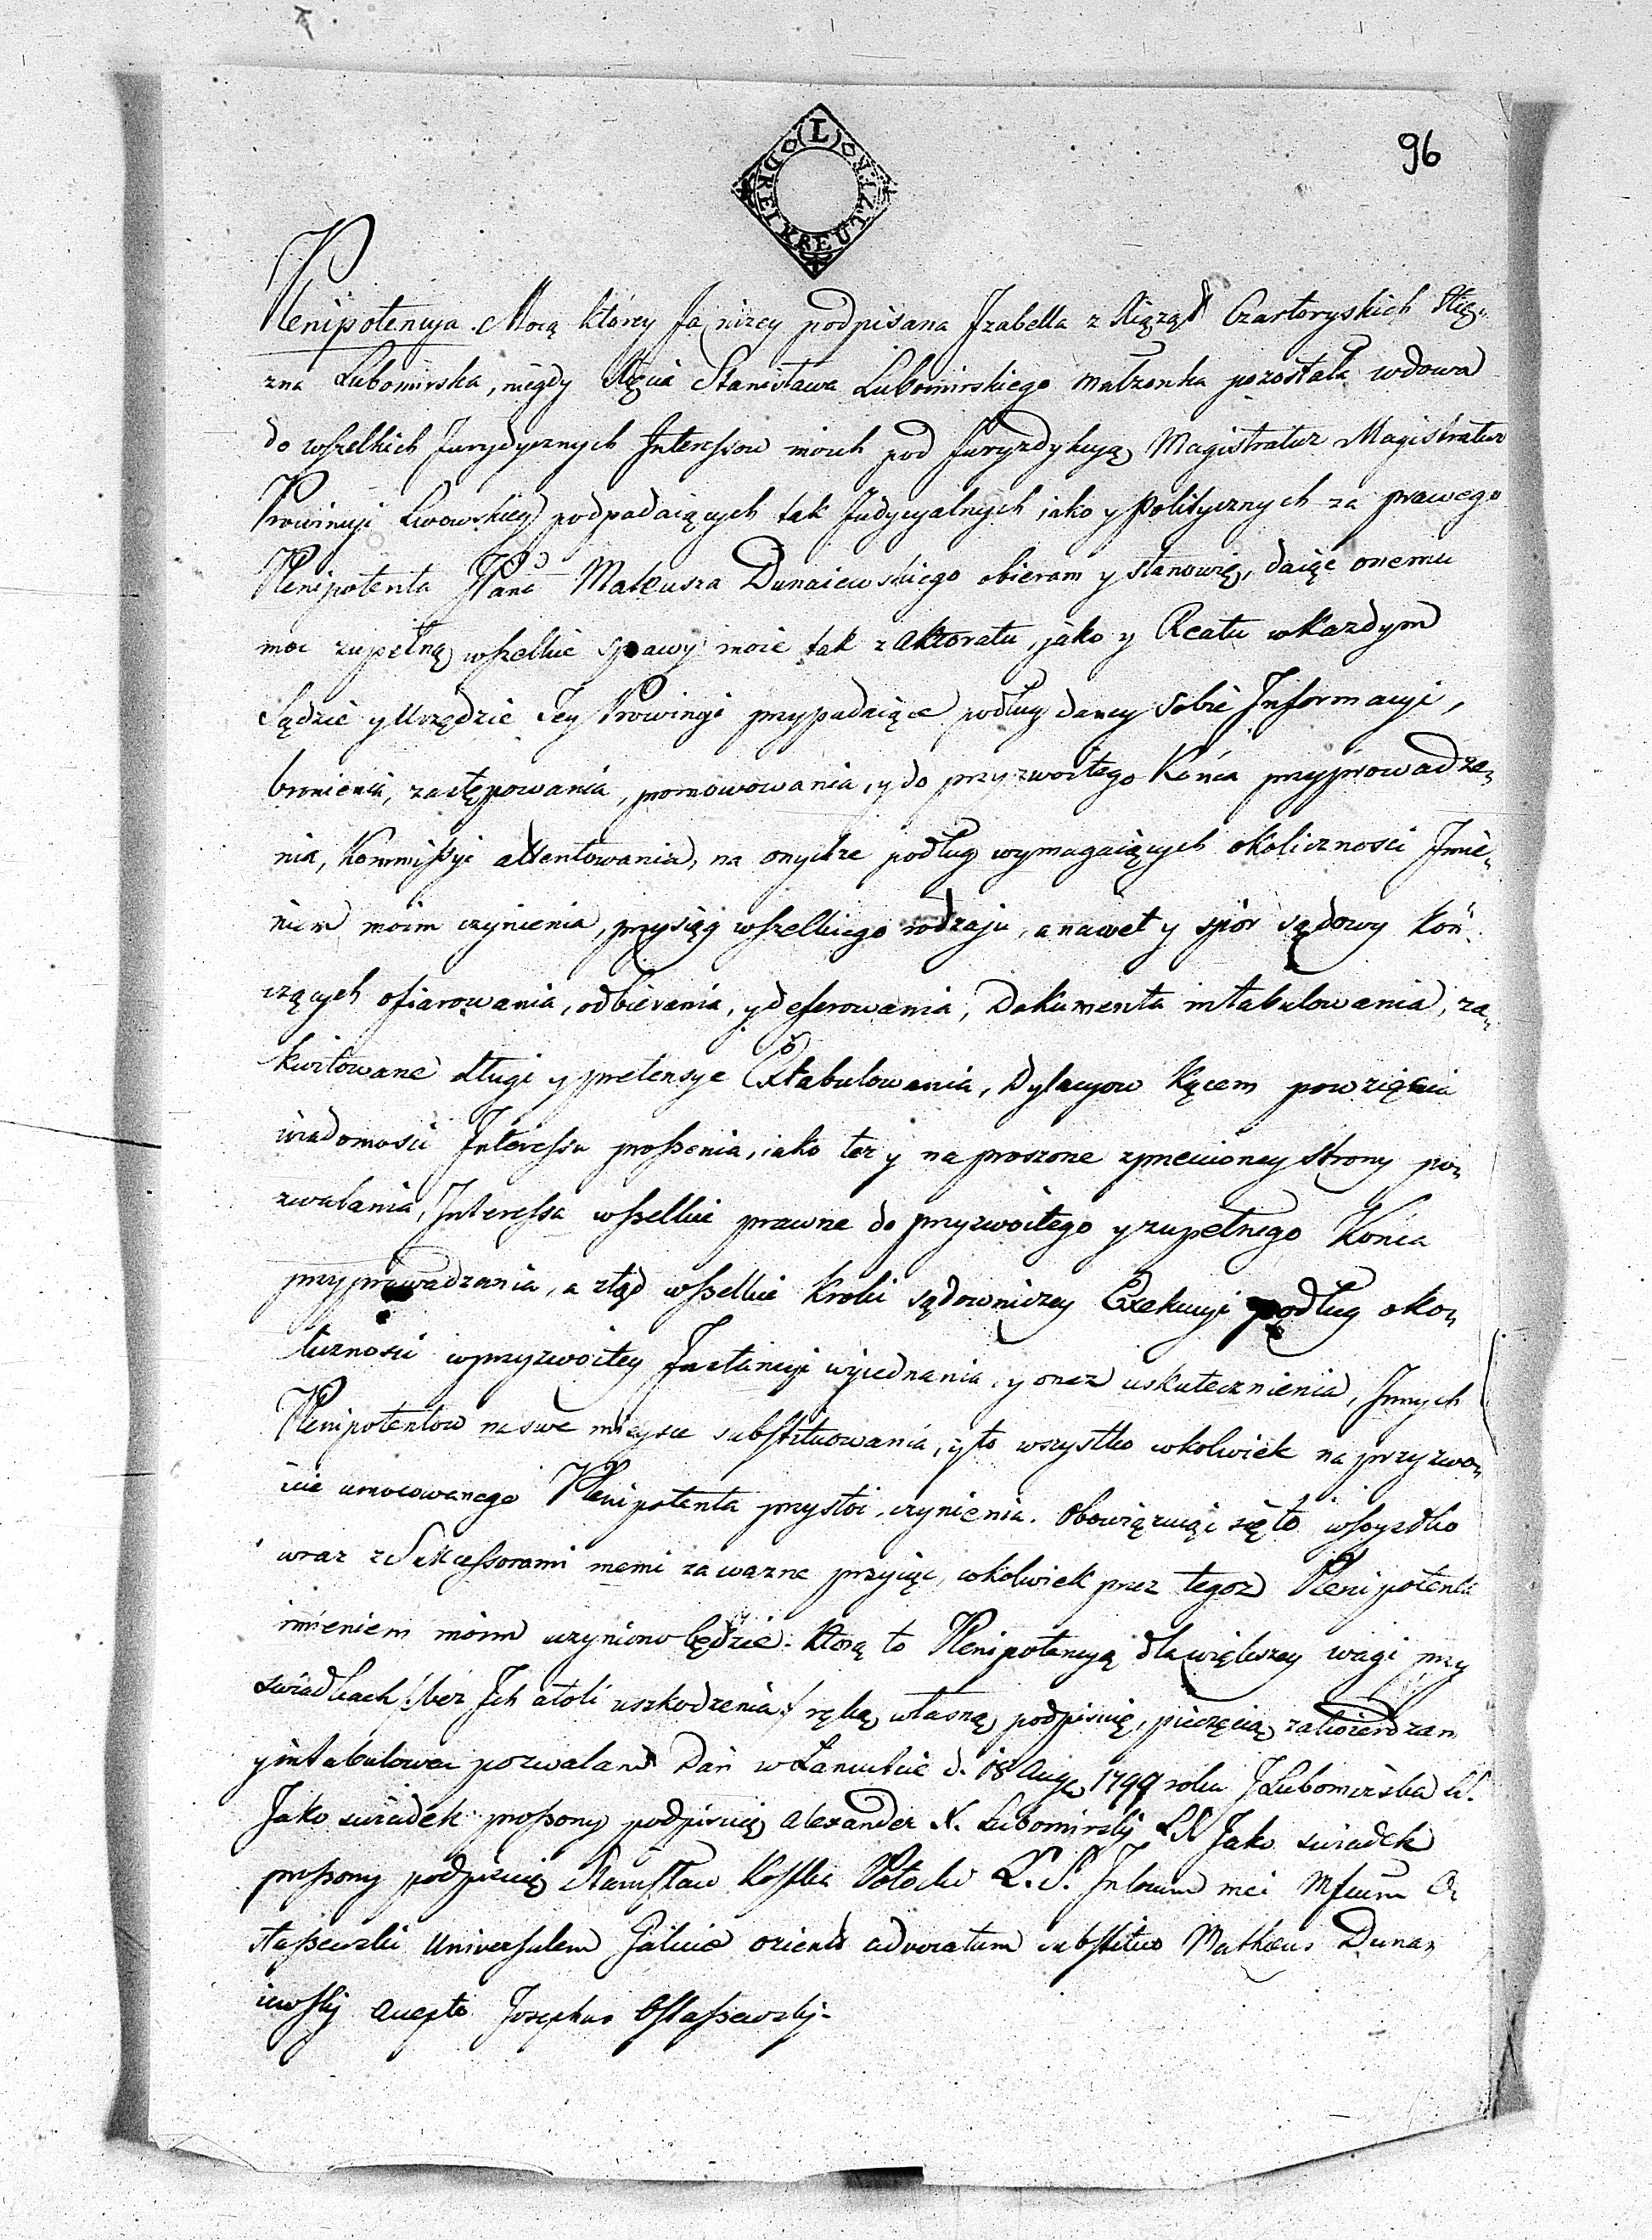 96
(L)
DREI KREUTZER
Plenipotencya. Mocą którey Ja niżey podpisana Izabella z Xiążąt Czartoryskich Xię„
żna Lubomirska, niegdy Xięcia Stanisława Lubomirskiego małżonka pozostała wdowa
do wszelkich Jurydycznych Interessow moich pod Juryzdykcyą Magistratur Magistratur
Prowincyi Lwowskiey podpadaiących tak Judycyalnych iako y Politycznych za prawego
Plenipotenta JPana Mateusza Dunaiewskiego obieram y stanowię, daiąc onemu
moc zupełną wszelkie sprawy moie tak z aktoratu, jako y Reatu w każdym
Sądzie y Urzędzie Tey Prowincyi przypadaiące podług daney sobie Informacyi,
bronienia, zastępowania, promowowania, y do przyzwoitego Końca przyprowadze„
nia, Kommissyi attentowania, na onychże podług wymagaiących okoliczności Imie„
niem moim czynienia, przysiąg wszelkiego rodzaju, a nawet y spór sądowy koń„
czących ofiarowania, odbierania, y deferowania, Dokumenta intabulowania, za„
kwitowane długi y pretensye Extabulowania, Dylacyow kącem powzięcia
wiadomości Interessu proszenia, iako też y na proszone z przeciwney strony po„
zwalania, Interessa wszelkie prawne do przyzwoitego y zupełnego Końca
przyprowadzania, a ztąd wszelkie kroki sądowniczey Exekucyi podług oko„
liczności w przyzwoitey Instancyi wyiednania, y onez uskutecznienia, Innych
Plenipotentow na swe mieysce substituowania, y to wszystko cokolwiek na przyzwo„
icie umocowanego Plenipotenta przystoi, czynienia. Obowiązuiąc się to wszystko
wraz z Sukcessorami memi za ważne przyiąć, cokolwiek przez tegoż Plenipotenta
imieniem moim uczyniono będzie. Którą to Plenipotencyą dla większey wagi przy
świadkach /: bez Ich atoli uszkodzenia :/ ręką własną podpisuię, pieczęcią zatwierdzam
y intabulować pozwalam Dan w Łancucie d. 18 Aug. 1799 roku JLubomirska LS.
Jako świadek proszony podpisuię Alexander X. Lubomirski LS Jako świadek
proszony podpisuię Stanisław Kostka Potocki L.S. In locum mei Mficum O„
staszewski Universalem Galicie orient advocatum substituo Matheus Duna„
iewski accepto Josephus Ostaszewski.